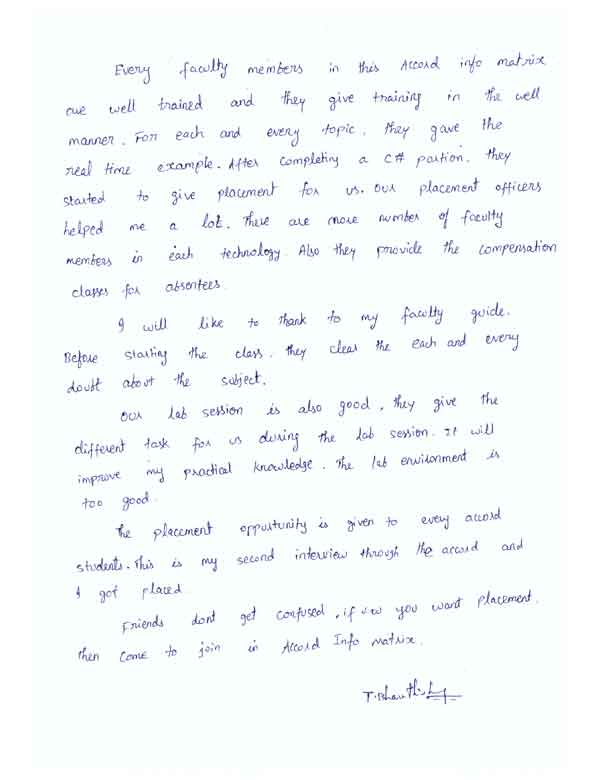 Every faculty members in this Accord info matrix
are well trained and they give training in the well
manner. For each and every topic, they gave the
real time example. After completing a C# portion. they
started to give placement for us. our placement officers
helped me a lot. There are more number of faculty
members in each technology. Also they provide the compensation
classes for absentees.
I will like to thank to my faculty guide.
Before starting the class, they clear the each and every
doubt about the subject.
Our lab session is also good, they give the
different task for us during the lab session. It will
improve my practical knowledge. The lab environment is
too good.
The placement opportunity is given to every accord
students. This is my second interview through the accord and
I got placed.
Friends dont get confused, if you want placement,
then come to join in Accord Info matrix.